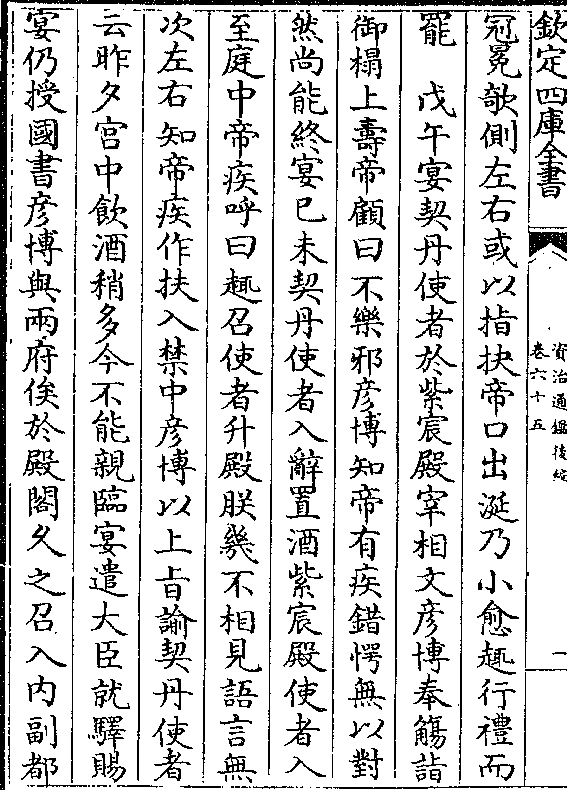 欽定四庫全書
資治通鑑後編
卷六十五
一
冠冕欹側左右或以指抉帝口出涎乃小愈趣行禮而
罷　戊午宴契丹使者於紫宸殿宰相文彥博奉觴詣
御榻上壽帝顧曰不樂邪彥博知帝有疾錯愕無以對
然尚能終宴已未契丹使者入辭置酒紫宸殿使者入
至庭中帝疾呼曰趣召使者升殿朕幾不相見語言無
次左右知帝疾作扶入禁中彥博以上旨諭契丹使者
云昨夕宮中飲酒稍多今不能親臨宴遣大臣就驛賜
宴仍授國書彥博與兩府俟於殿閣久之召入內副都